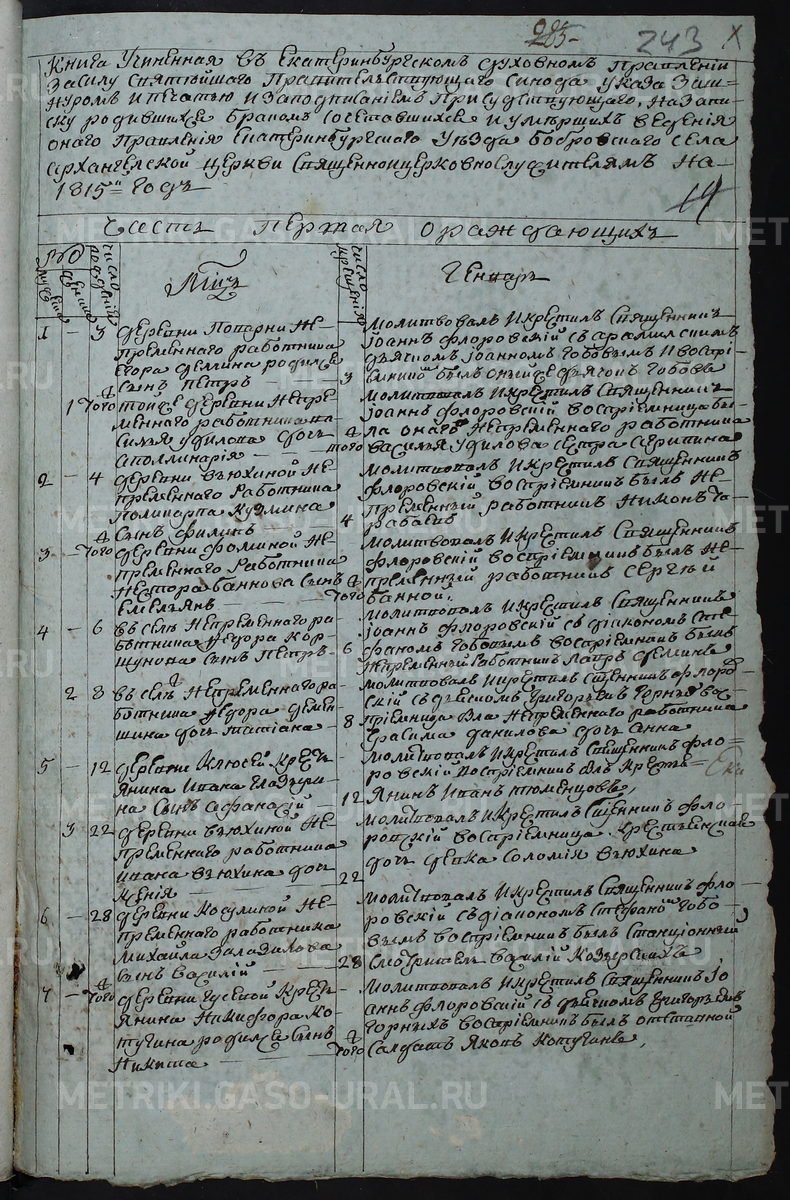 285-
243
Х
Книга Учиненная въ Екатеринбургскомъ духовномъ Правленіи
Засилу Святѣйшаго Правительствующаго Синода указа Заш-
нуромъ и печатью и Заподписаніемъ Присудствующаго, На Запи-
ску родившихся браком Сочетавшихся и умершихъ вѣденія
онаго Правленія Екатеринбургскаго Уѣзда бобровскаго села
Архангелской церкви Священноицерковнослужителямъ На-
1815й Годъ
14
Часть первая ораждающихъ
число рожденій
Мцъ
число крещенія
Генварь
1 - 3 деревни
премѣннаго работника
Егора Демина родился
Сынъ Петръ
3
Молитвовалъ и крестилъ Священникъ
Іоаннъ Флоровскій съ арамилскимъ
Іоанномъ Гобовымъ и воспрі-
1 Того тойже деревни Непре-
меннаго работника ва-
силья Удилова дочь
Аполлинарія
того
Молитвовалъ и крестилъ Священникъ
Іоаннъ Флоровскій воспріемница бы-
ла онаго Непременнаго работника
василья Удилова сестра Агрипина
2 - 4 деревни вьюхиной Не-
премѣннаго работника
Поликарпа Кузмина
Сынъ Филипъ
4
Молитвовалъ и крестилъ Священникъ
Флоровскій воспріемникъ былъ Не-
премѣнный работникъ Никонъ Та-
рабаевъ
3 - Того деревни Фоминой Не-
премѣннаго Работника
Нестора баннова Сынъ
Емельянъ
Того
Молитвовалъ и крестилъ Священникъ
Флоровскій воспріемникъ былъ Не-
премѣнный работникъ Сергѣй
банной.
4 - 6 въ селѣ Непремѣннаго ра-
ботника Федора Кор-
шунова сынъ Петръ
6
Молитвовалъ и крестилъ Священникъ
Іоаннъ Флоровскій съ діакономъ Сте-
фаномъ Гобовымъ воспріемникъ былъ
Непременный работникъ Лавръ Деминъ
2 8 въ селѣ Непременнаго ра-
ботника Федора Демен-
шина дочь татіана
8
Молитвовалъ и крестилъ Сщенникъ Флоров-
скій съ дьячкомъ Григорьемъ Горныхъ вос-
пріемница бла Непременнаго работника
Герасима данилова дочь Анна
5 - 12 деревни Ключей Кресть-
янина Ивана Гладкри-
на Сынъ Афанасій
12
Молитвовалъ и крестилъ Священникъ Фло-
ровскій воспріемникъ блъ Кресть-
янинъ Иванъ Тюменцовъ,
3 22 деревни вьюхиной Не-
премѣннаго работника
Ивана вьюхина дочь
Ксенія
22
Молитвовалъ и крестилъ Сщенникъ Фло-
ровскій воспріемница крестьянская
дочь девка Соломія вьюхина
6 - 28 деревни Косулиной Не-
премѣннаго работника
Михайла
Сынъ василій
28
Молитвовалъ и крестилъ Священникъ Фло-
ровскій съ діакономъ Стефаномъ Гобо-
вымъ воспріемникъ былъ станціонный
Смотритель василій
7 - Того деревни Гусевой Кресть-
янина Никифора Ко-
тугина родился Сынъ
Никита
Того
Молитвовалъ и крестилъ Священникъ Іо-
аннъ Флоровскій съ дьячкомъ Григорьемъ
Горныхъ воспріемникъ былъ отставной
Салдатъ Яковъ Котугинъ,
METRIKI.GASO-URAL.RU